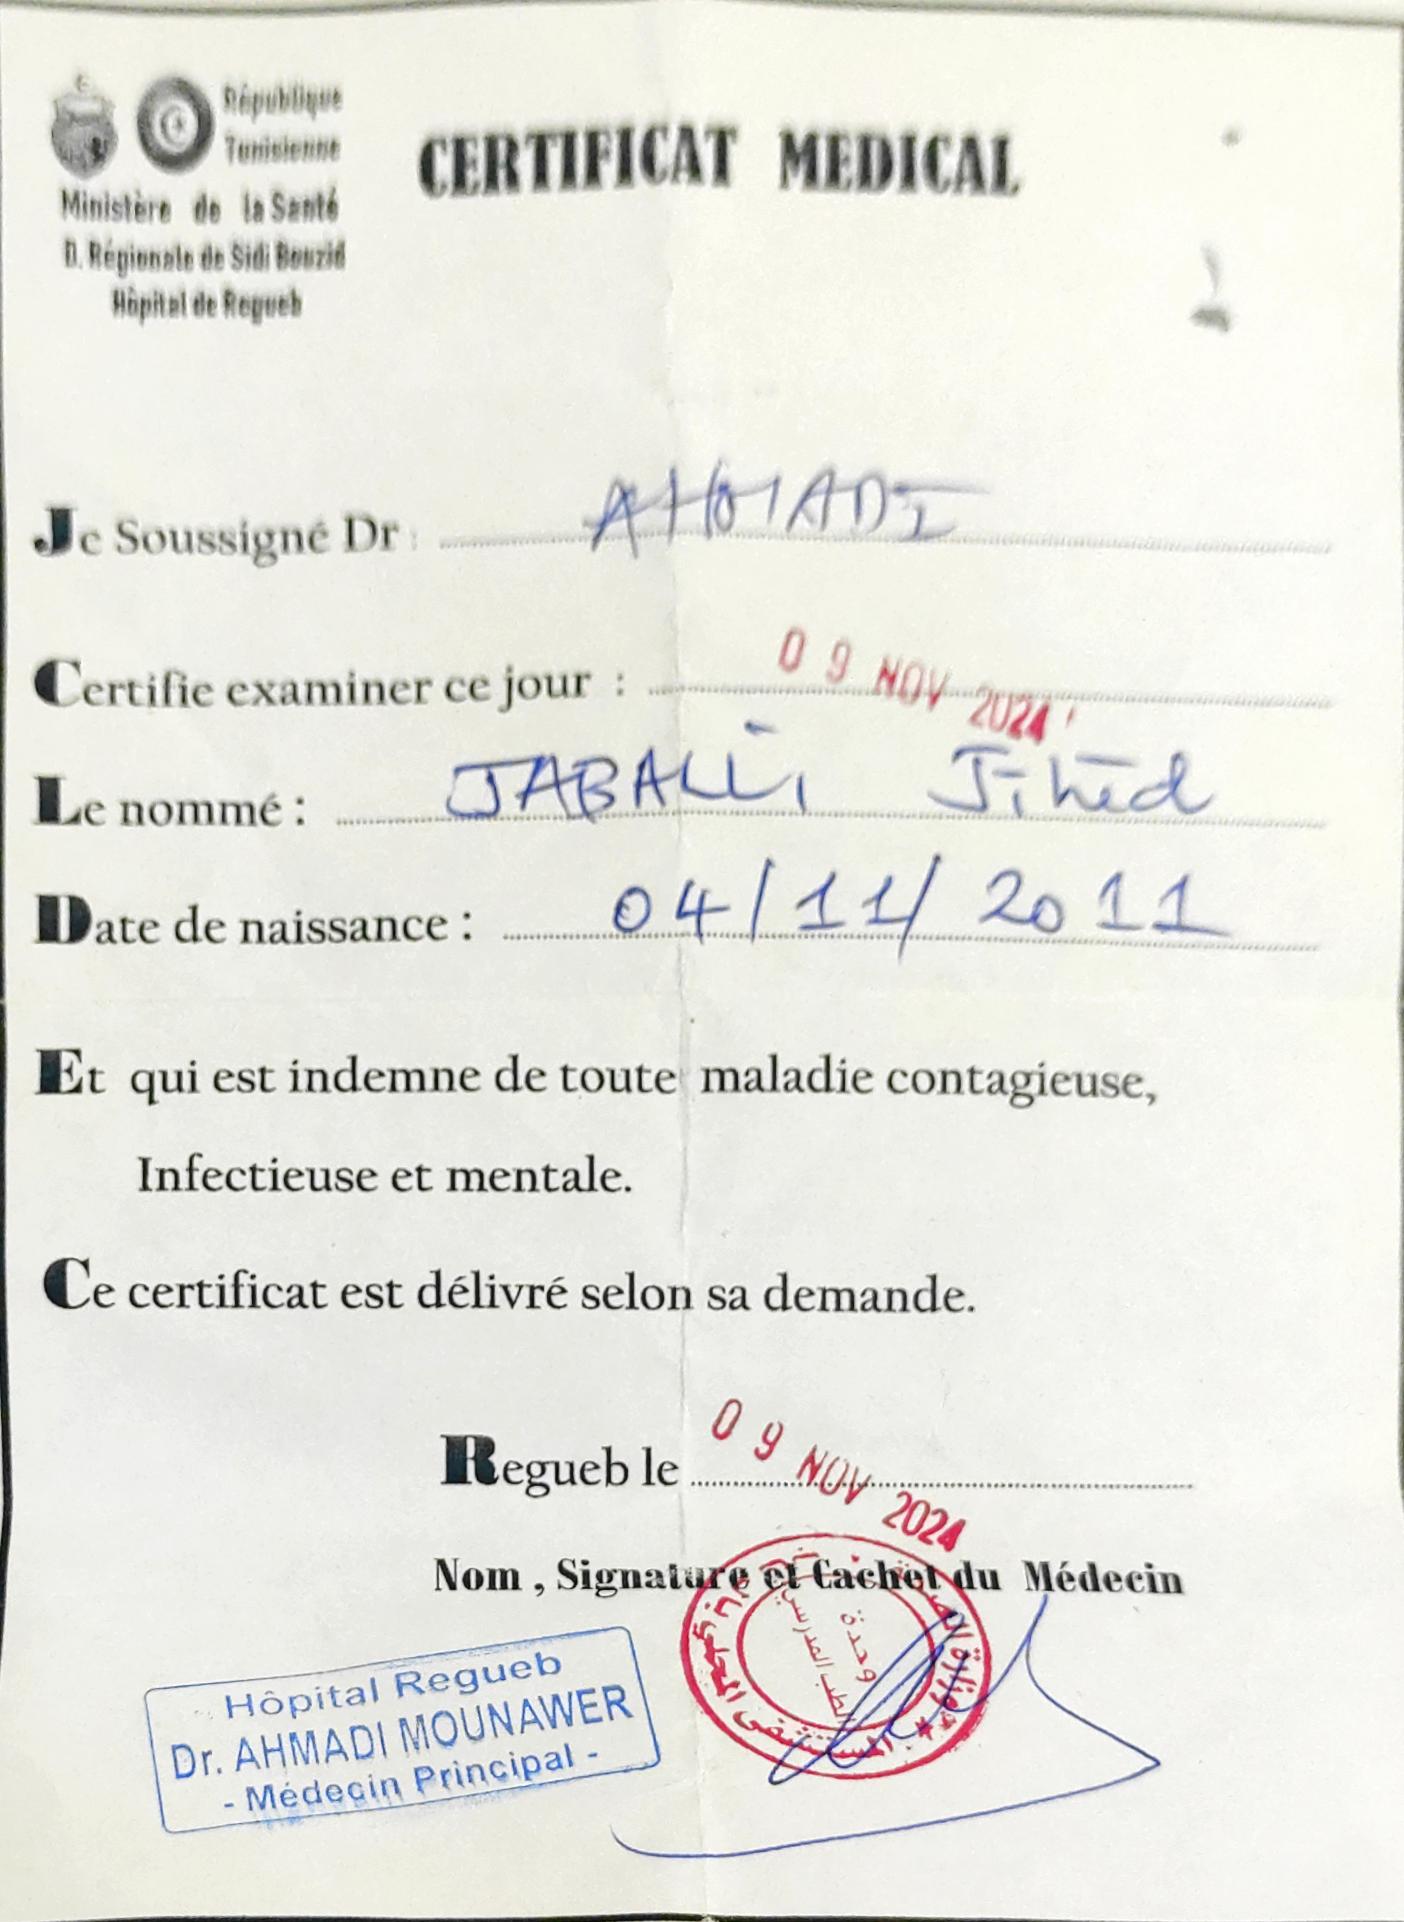 République
Tunisienne
Ministère de la Santé
D. Régionale de Sidi Bouzid
Hôpital de Regueb
CERTIFICAT MEDICAL
Je Soussigné Dr : AHMADI
Certifie examiner ce jour : 09 NOV 2024
Le nommé : JABALLI Jihed
Date de naissance : 04/11/2011
Et qui est indemne de toute maladie contagieuse,
Infectieuse et mentale.
Ce certificat est délivré selon sa demande.
Regueb le 09 NOV 2024
Nom , Signature et Cachet du Médecin
Hôpital Regueb
Dr. AHMADI MOUNAWER
- Médecin Principal -
وزارة الصحة
المستشفى المحلي
وحدة
الطب المدرسي